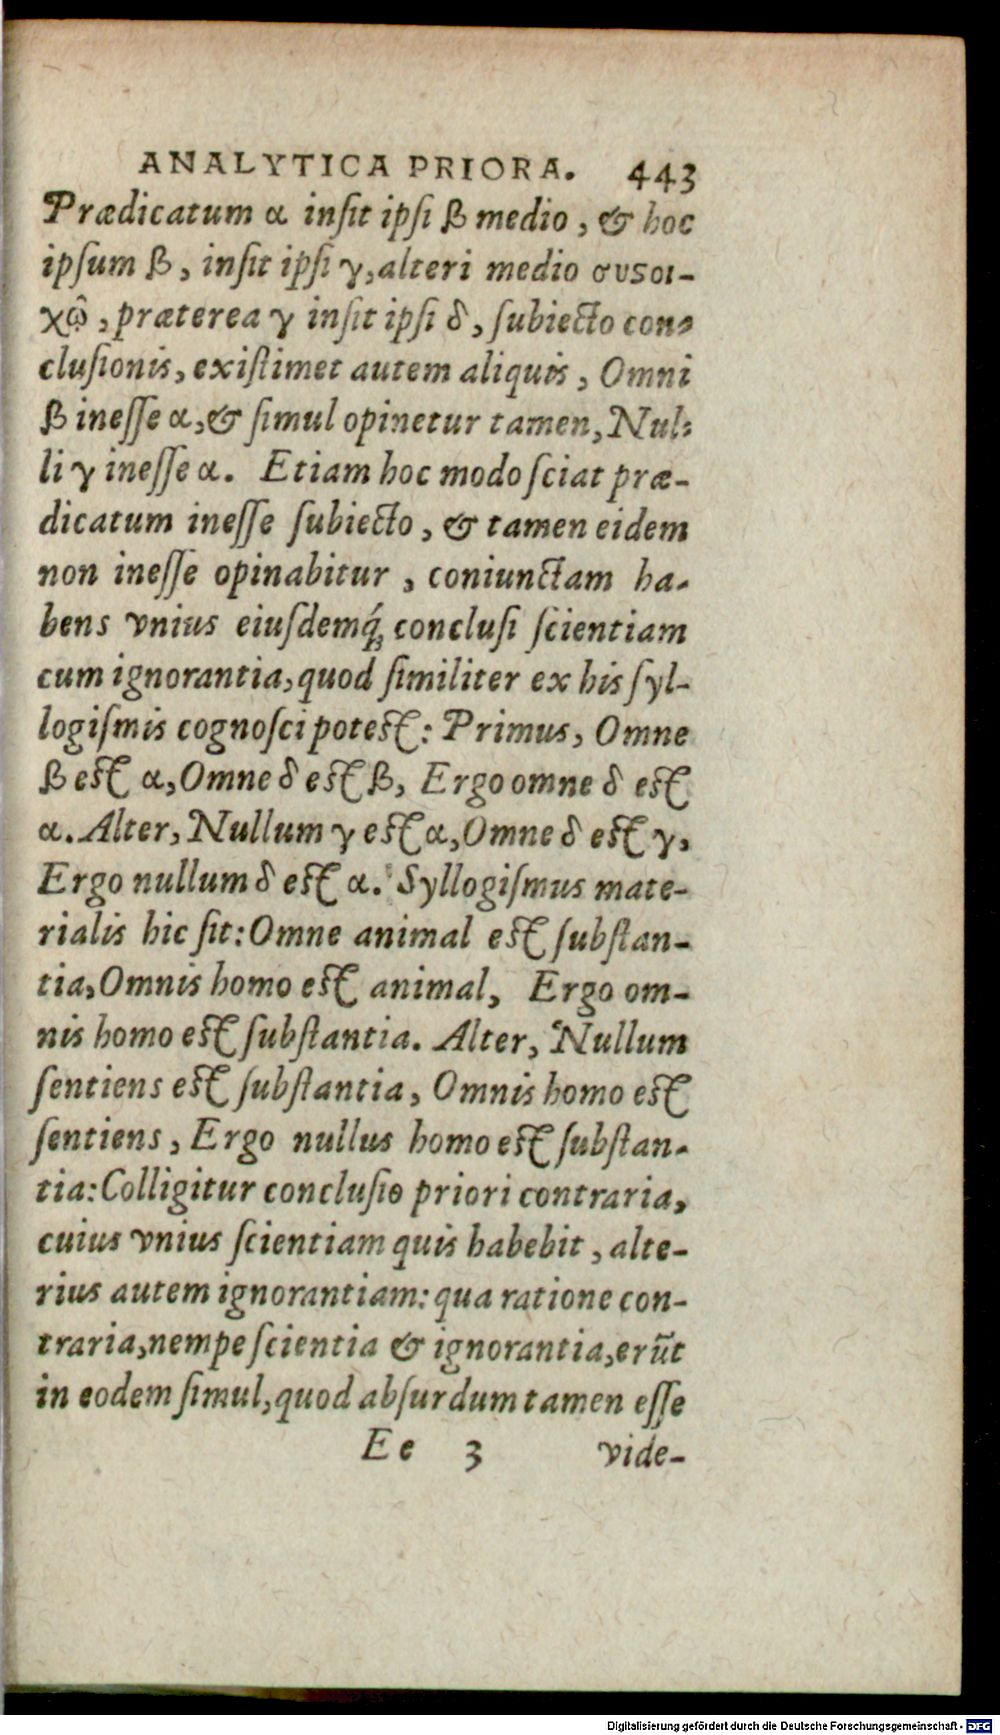 ANALYTICA PRIORA. 443
Prædicatum α inſit ipſi β medio, & hoc
ipſum β, inſit ipſi γ, alteri medio συϛοι-
χῳ̂, præterea γ inſit ipſi δ, ſubiecto con-
cluſionis, exiſtimet autem aliquis, Omni
β ineſſe α, & ſimul opinetur tamen, Nul-
li γ ineſſe α. Etiam hoc modo ſciat præ-
dicatum ineſſe ſubiecto, & tamen eidem
non ineſſe opinabitur, coniunctam ha-
bens vnius eiuſdemq́; concluſi ſcientiam
cum ignorantia, quod ſimiliter ex his ſyl-
logiſmis cognoſci poteſt: Primus, Omne
β eſt α, Omne δ eſt β, Ergo omne δ eſt
α. Alter, Nullum γ eſt α, Omne δ eſt γ,
Ergo nullum δ eſt α. Syllogiſmus mate-
rialis hic ſit: Omne animal eſt ſubſtan-
tia, Omnis homo eſt animal, Ergo om-
nis homo eſt ſubſtantia. Alter, Nullum
ſentiens eſt ſubſtantia, Omnis homo eſt
ſentiens, Ergo nullus homo eſt ſubſtan-
tia: Colligitur concluſio priori contraria,
cuius vnius ſcientiam quis habebit, alte-
rius autem ignorantiam: qua ratione con-
traria, nempe ſcientia & ignorantia, erũt
in eodem ſimul, quod abſurdum tamen eſſe
Ee 3 vide-
Digitalisierung gefördert durch die Deutsche Forschungsgemeinschaft - DFG